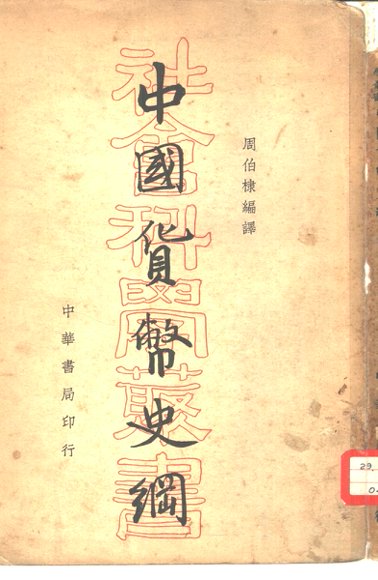 周伯棣編譯
中國貨幣史綱
社會科學叢書
中華書局印行
29.